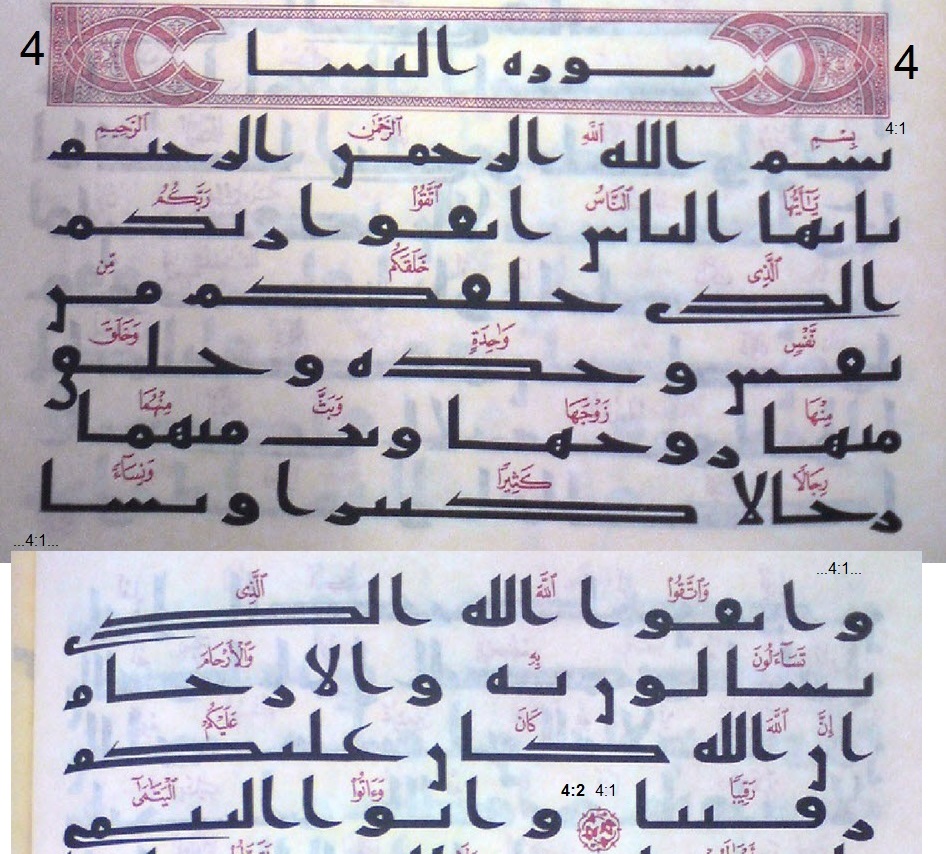 4 سوره النسا 4
بِسْمِ ٱللَّهِ ٱلرَّحْمَٰنِ ٱلرَّحِيمِ 4:1
بسم الله الرحمن الرحيم
يَٰٓأَيُّهَا ٱلنَّاسُ ٱتَّقُوا۟ رَبَّكُمُ
يايها الناس اتقوا ربكم
ٱلَّذِى خَلَقَكُم مِّن
الذى خلقكم من
نَّفْسٍ وَٰحِدَةٍ وَخَلَقَ
نفس وحده وخلق
مِنْهَا زَوْجَهَا وَبَثَّ مِنْهُمَا
منها زوجها وبث منهما
رِجَالًا كَثِيرًا وَنِسَآءً
رجالا كثيرا ونسا
...4:1...
...4:1...
وَٱتَّقُوا۟ ٱللَّهَ ٱلَّذِى
واتقوا الله الذى
تَسَآءَلُونَ بِهِۦ وَٱلْأَرْحَامَ
تسالون به والارحام
إِنَّ ٱللَّهَ كَانَ عَلَيْكُمْ
ان الله كان عليكم
رَقِيبًا 4:1 4:2 وَءَاتُوا۟ ٱلْيَتَٰمَىٰٓ
رقيبا واتوا اليتمى